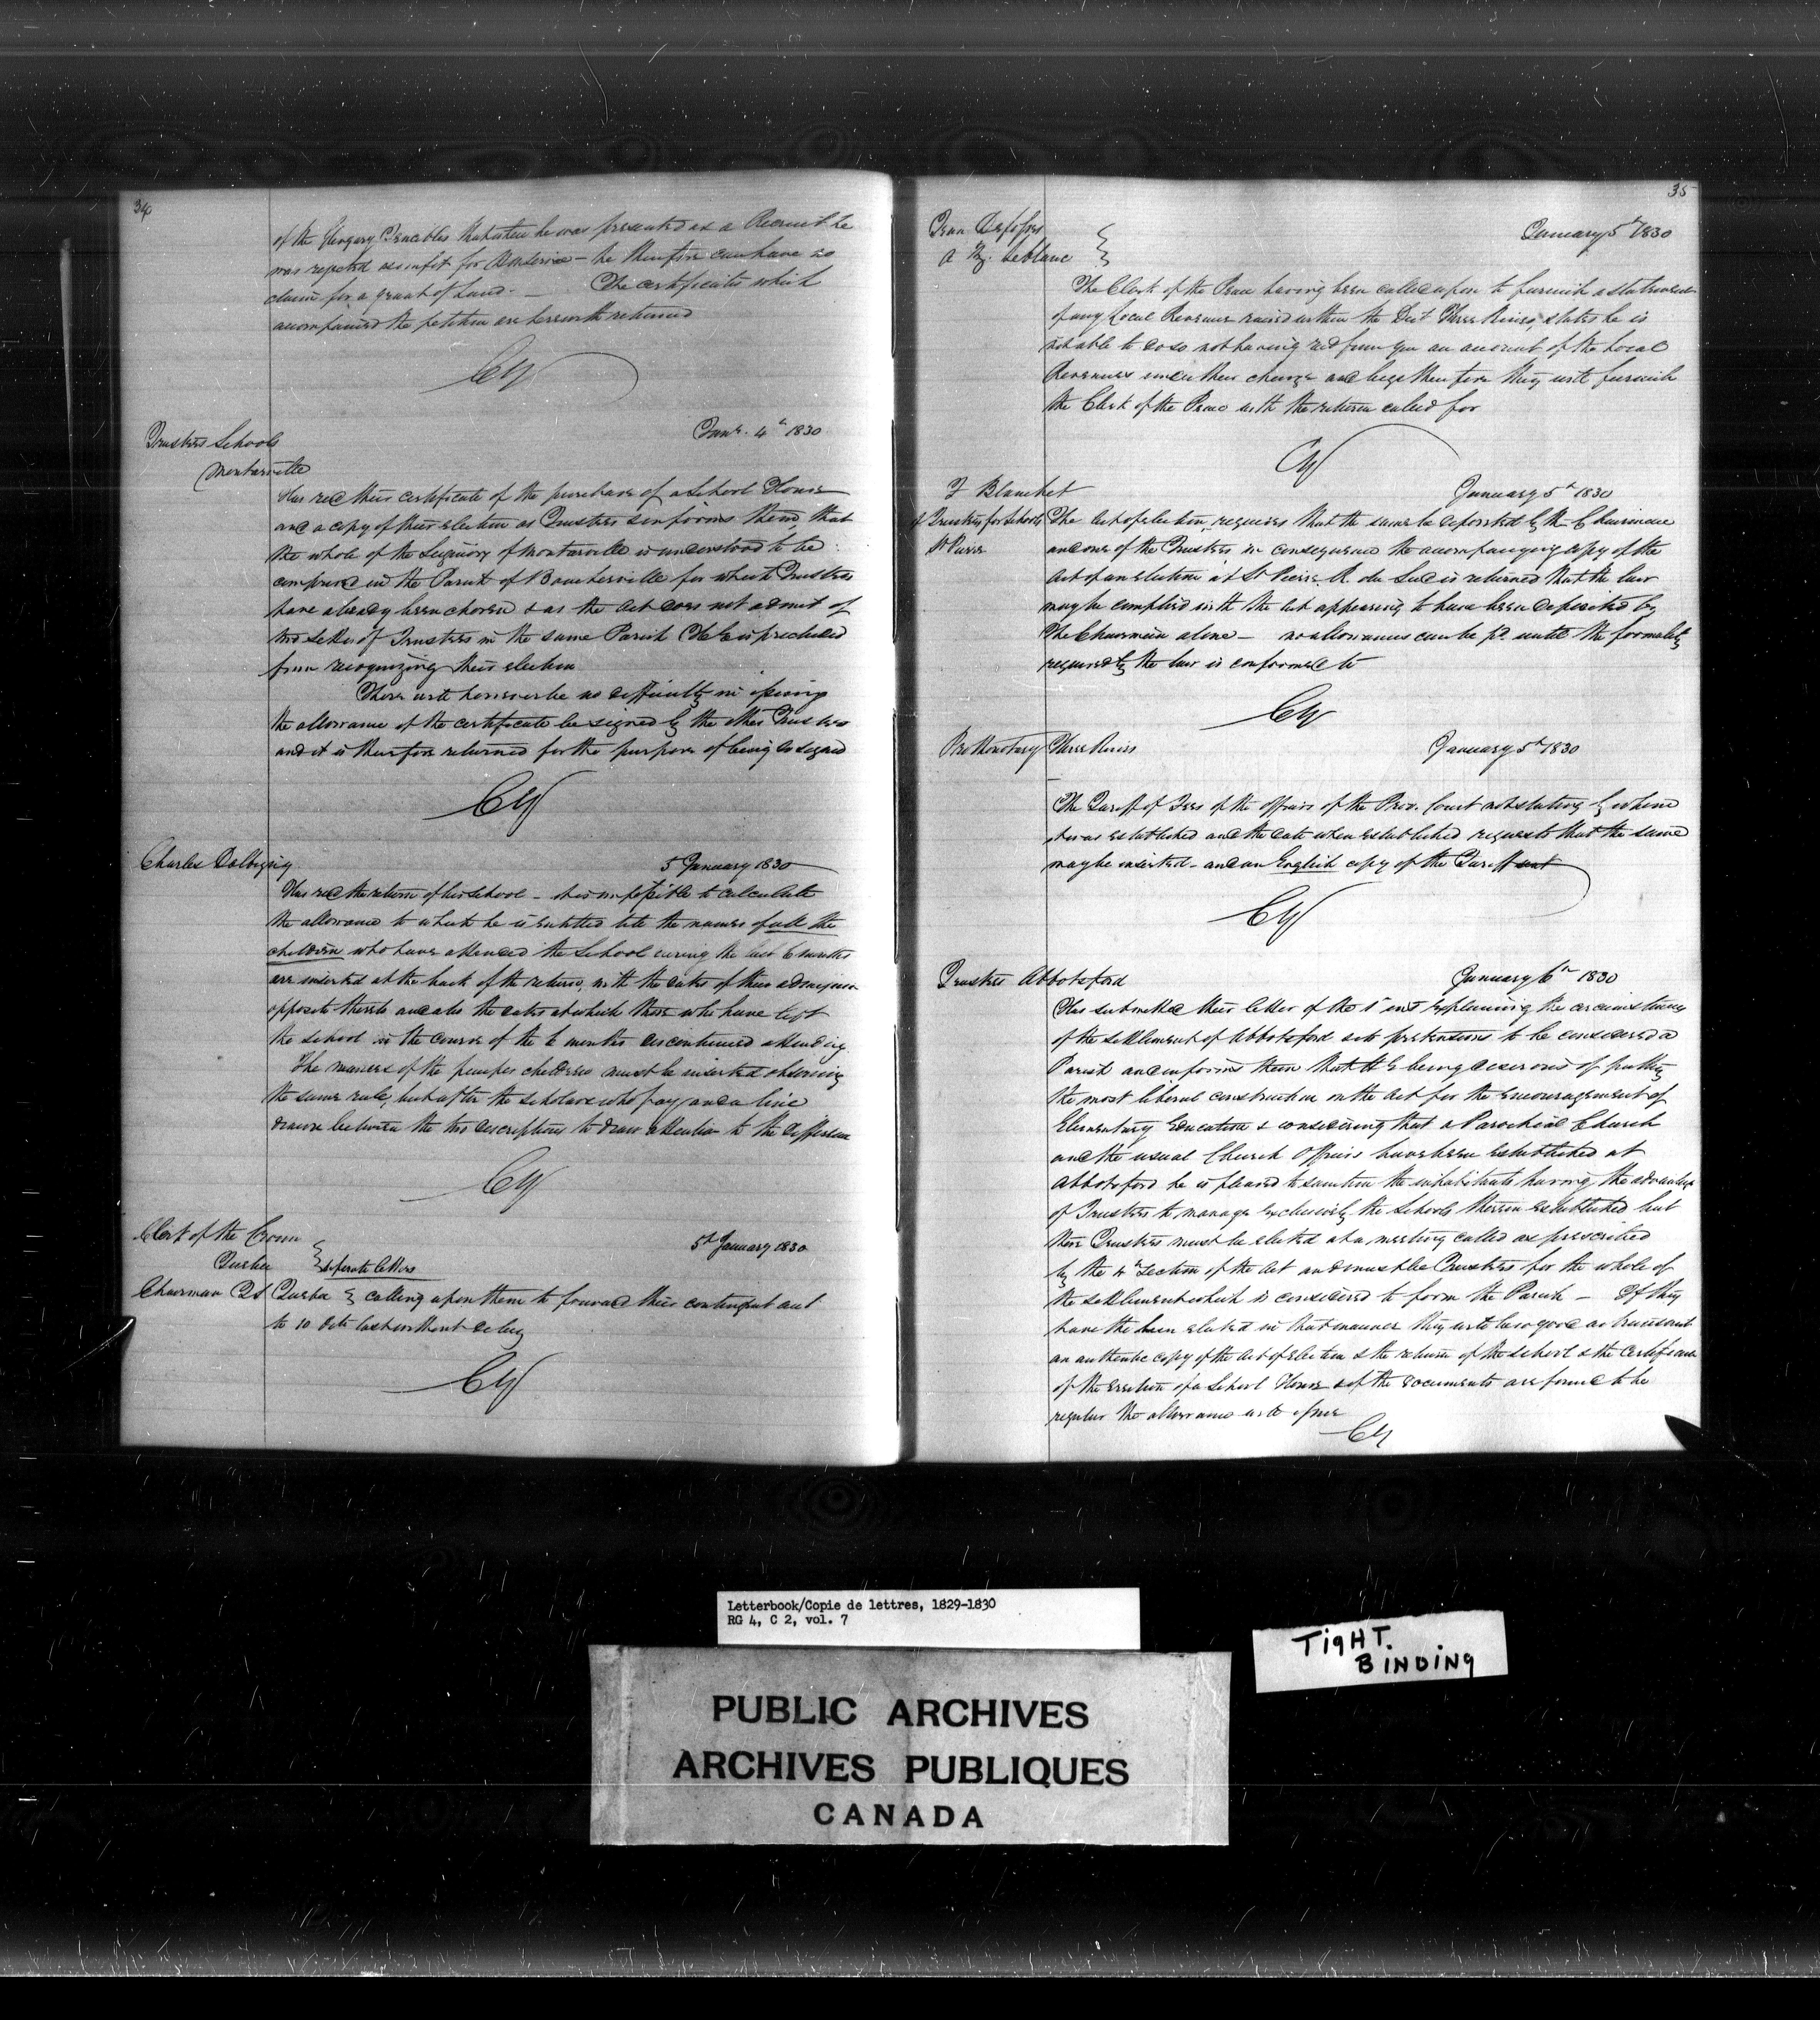 34
of the Glengary Fencibles that when he was presented as a Recruit he
was rejected as unfit for Service - he therefore can have no
claim for a grant of Land. - The certificates which
accompanied the petition are herewith returned
CY
Trustees Schools
Montarville
Jany. 4th 1830
Has recd their certificate of the purchase of a School House
and a copy of their election as Trustees & informs them, that
the whole of the Seigniory of Montarville is understood to be
comprised in the Parish of Boucherville for which Trustees
have already been chosen & as the Act does not admit of
two setts of Trustees in the same Parish H E is precluded
from recognizing their election
There will however be no difficulty in issuing
the allowance if the certificate be signed by the other Trustees
and it is therefore returned for the purpose of being so signed
CY
Charles
5 January 1830
Has recd the return of his School - it is impossible to calculate
the allowance to which he is entitled till the names of all the
children who have attended the School during the last 6 months
are inserted at the back of the return, with the dates of their admission
opposite thereto and also the dates at which those who have left
the school in the course of the 6 months discontinued attending.
The names of the pauper children must be inserted observing
the same rule, but after the scholars who pay and a line
drawn between the two descriptions to draw attention to the difference
CY
Clerk of the Crown
Quebec
separate letters
5th January 1830
Chairman QS Quebec calling upon them to forward their contingent acct
to 10 Octr last without delay
CY
35
Jean Desfossés
A Z. Leblanc
January 5th 1830
The Clerk of the Peace having been called upon to furnish a statement
of any Local Revenue raised within the Dist Three Rivers, states he is
not able to do so not having recd from you an account of the Local
Revenues under their charge and begs therefore they will furnish
the Clerk of the Peace with the return called for
CY
F Blanchet
January 5th 1830
of Trustees for Schools
St Pierre
The Act of election, requires that the same be deposited by the Chairman
and one of the Trustees in consequence the accompanying copy of the
Act of an election at St Pierre R. du Sud is returned that the law
may be complied with the Act appearing to have been deposited by
the Chairman alone - no allowances can be pd until the formality
required by the law is conformed to
CY
Prothonotary Three Rivers
January 5th 1830
The Tariff of Fees of the Officers of the Prov. Court not stating by whom
it was established and the date when established requests that the same
may be inserted - and an English copy of the Tariff sent
CY
Trustees Abbotsford
January 6th 1830
Has submitted their letter of the 1st inst explaining the circumstances
of the settlement of Abbotsford as to pretensions to be considered a
Parish and informs them that H E being desirous of putting
the most liberal construction on the Act for the encouragement of
Elementary Education & considering that a Parochial Church
and the usual Church Officers have been established at
Abbotsford he is pleased to sanction the inhabitants having the advantage
of Trustees to manage exclusively the Schools therein established but
these Trustees must be elected at a meeting called as prescribed
by the 4th Section of the Act and must be Trustees for the whole of
the settlement which is considered to form the Parish - If they
have the been elected in that manner they will be so good as transmit
an authentic copy of the Act of Election & the return of the School & the Certificate
of the erection of a School House & if the documents are found to be
regular the allowance will issue
CY
Letterbook/Copie de lettres, 1829-1830
RG 4, C 2, vol. 7
TIGHT.
BINDING
PUBLIC ARCHIVES
ARCHIVES PUBLIQUES
CANADA